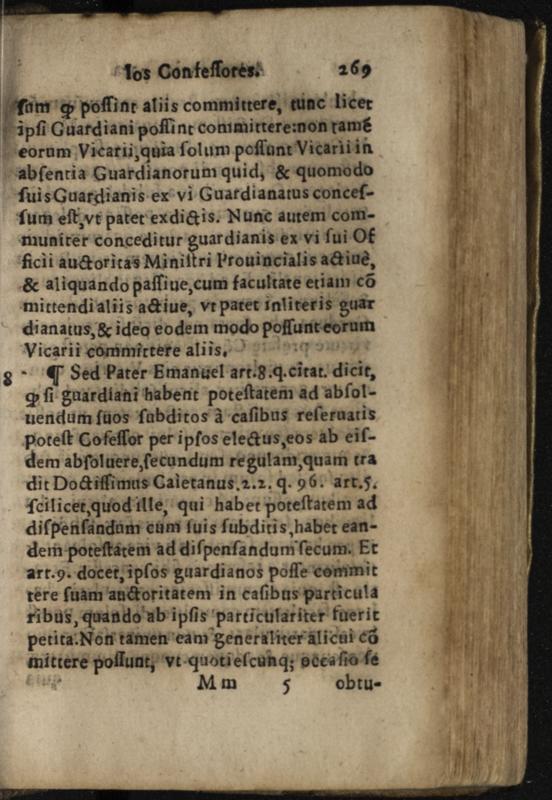 los Confeſſores. 269
ſum ꝙ poſſint aliis committere, tunc licet
ipſi Guardiani poſſint committere:non tamẽ
eorum Vicarii,quia ſolum poſſunt Vicarii in
abſentia Guardianorum quid, & quomodo
ſuis Guardianis ex vi Guardianatus conceſ-
ſum eſt,vt patet ex dictis. Nunc autem com-
muniter conceditur guardianis ex vi ſui Of
ficii auctoritas Miniſtri Prouincialis actiuè,
& aliquando paſſiue,cum facultate etiam cõ
mittendi aliis actiue, vt patet in literis guar
dianatus,& ideo eodem modo poſſunt eorum
Vicarii committere aliis.
8 ¶ Sed Pater Emanuel art.8.q.citat. dicit,
ꝙ ſi guardiani habent poteſtatem ad abſol-
uendum ſuos ſubditos à caſibus reſeruatis
poteſt Cofeſſor per ipſos electus,eos ab eiſ-
dem abſoluere,ſecundum regulam,quam tra
dit Doctiſſimus Caietanus.2.2. q. 96. art.5.
ſcilicet,quod ille, qui habet poteſtatem ad
diſpenſandum cum ſuis ſubditis,habet ean-
dem poteſtatem ad diſpenſandum ſecum. Et
art.9. docet,ipſos guardianos poſſe commit
tere ſuam auctoritatem in caſibus particula
ribus,quando ab ipſis particulariter fuerit
petita.Non tamen eam generaliter alicui cõ
mittere poſſunt, vt quotieſcunq; occaſio ſe
M m 5 obtu-